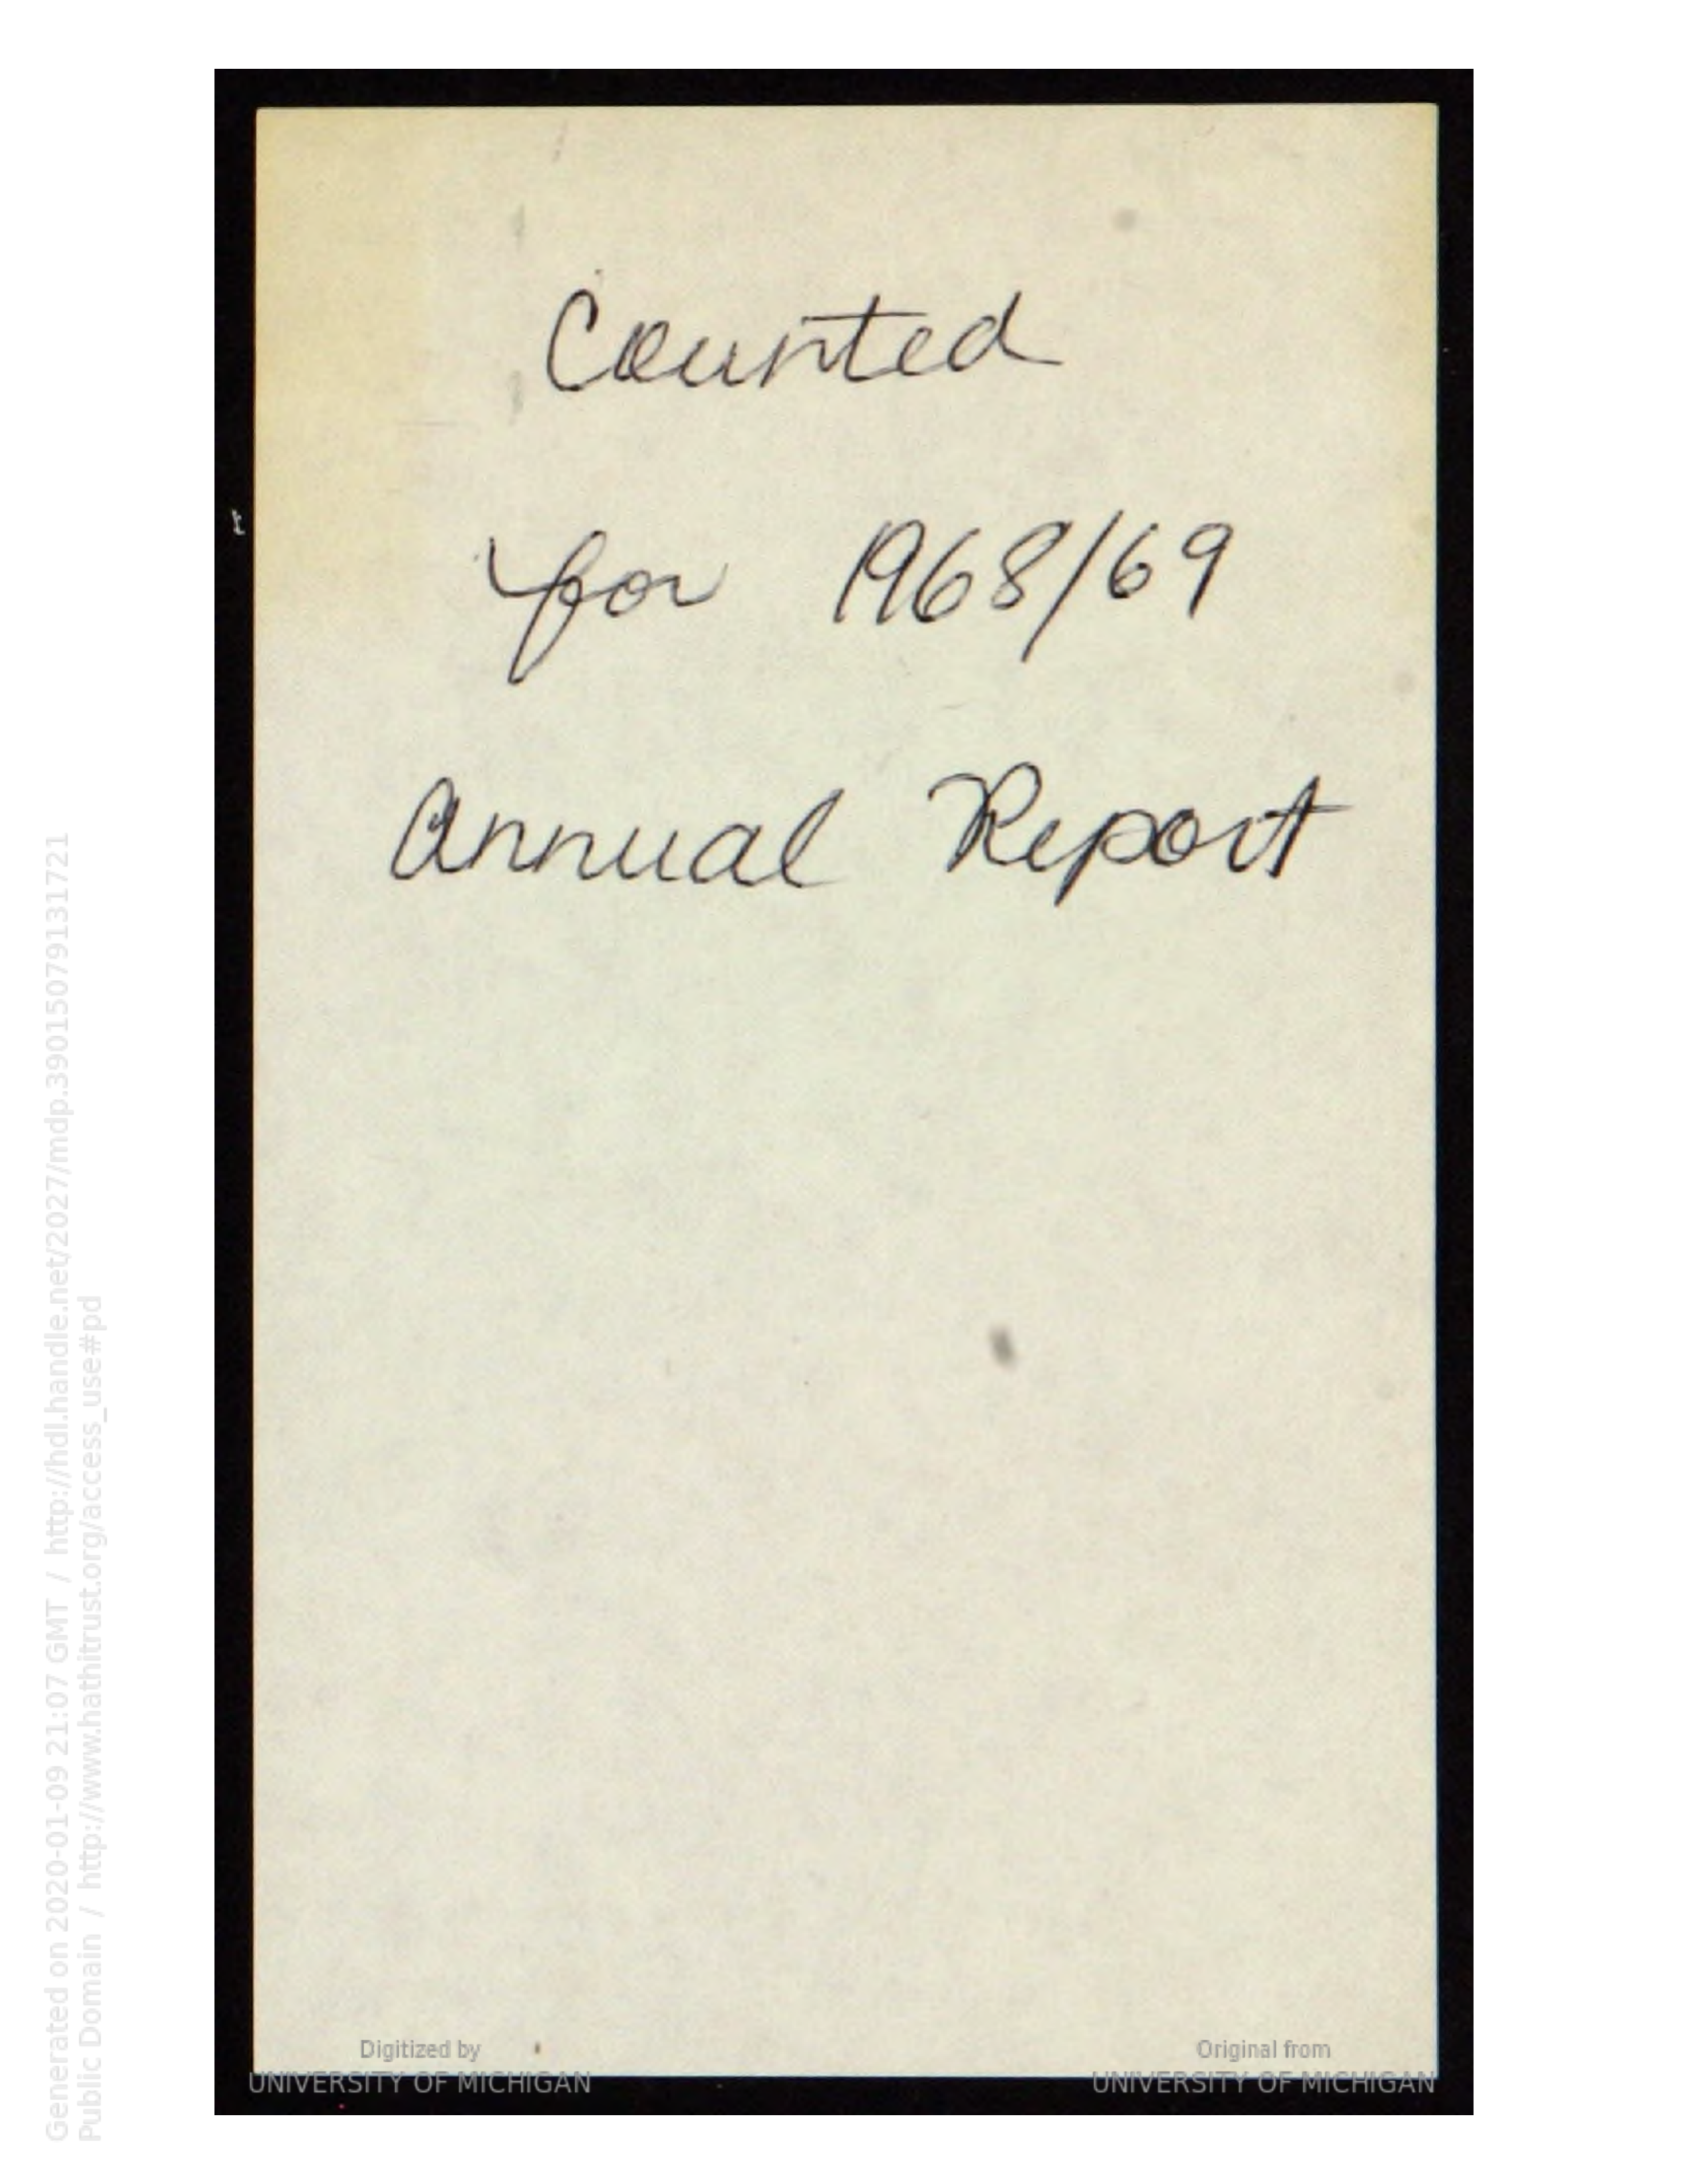 Counted
for 1968/69
Annual Report
Digitized by
UNIVERSITY OF MICHIGAN
Original from
UNIVERSITY OF MICHIGAN
Generated on 2020-01-09 21:07 GMT / http://hdl.handle.net/2027/mdp.39015079131721
Public Domain / http://www.hathitrust.org/access_use#pd